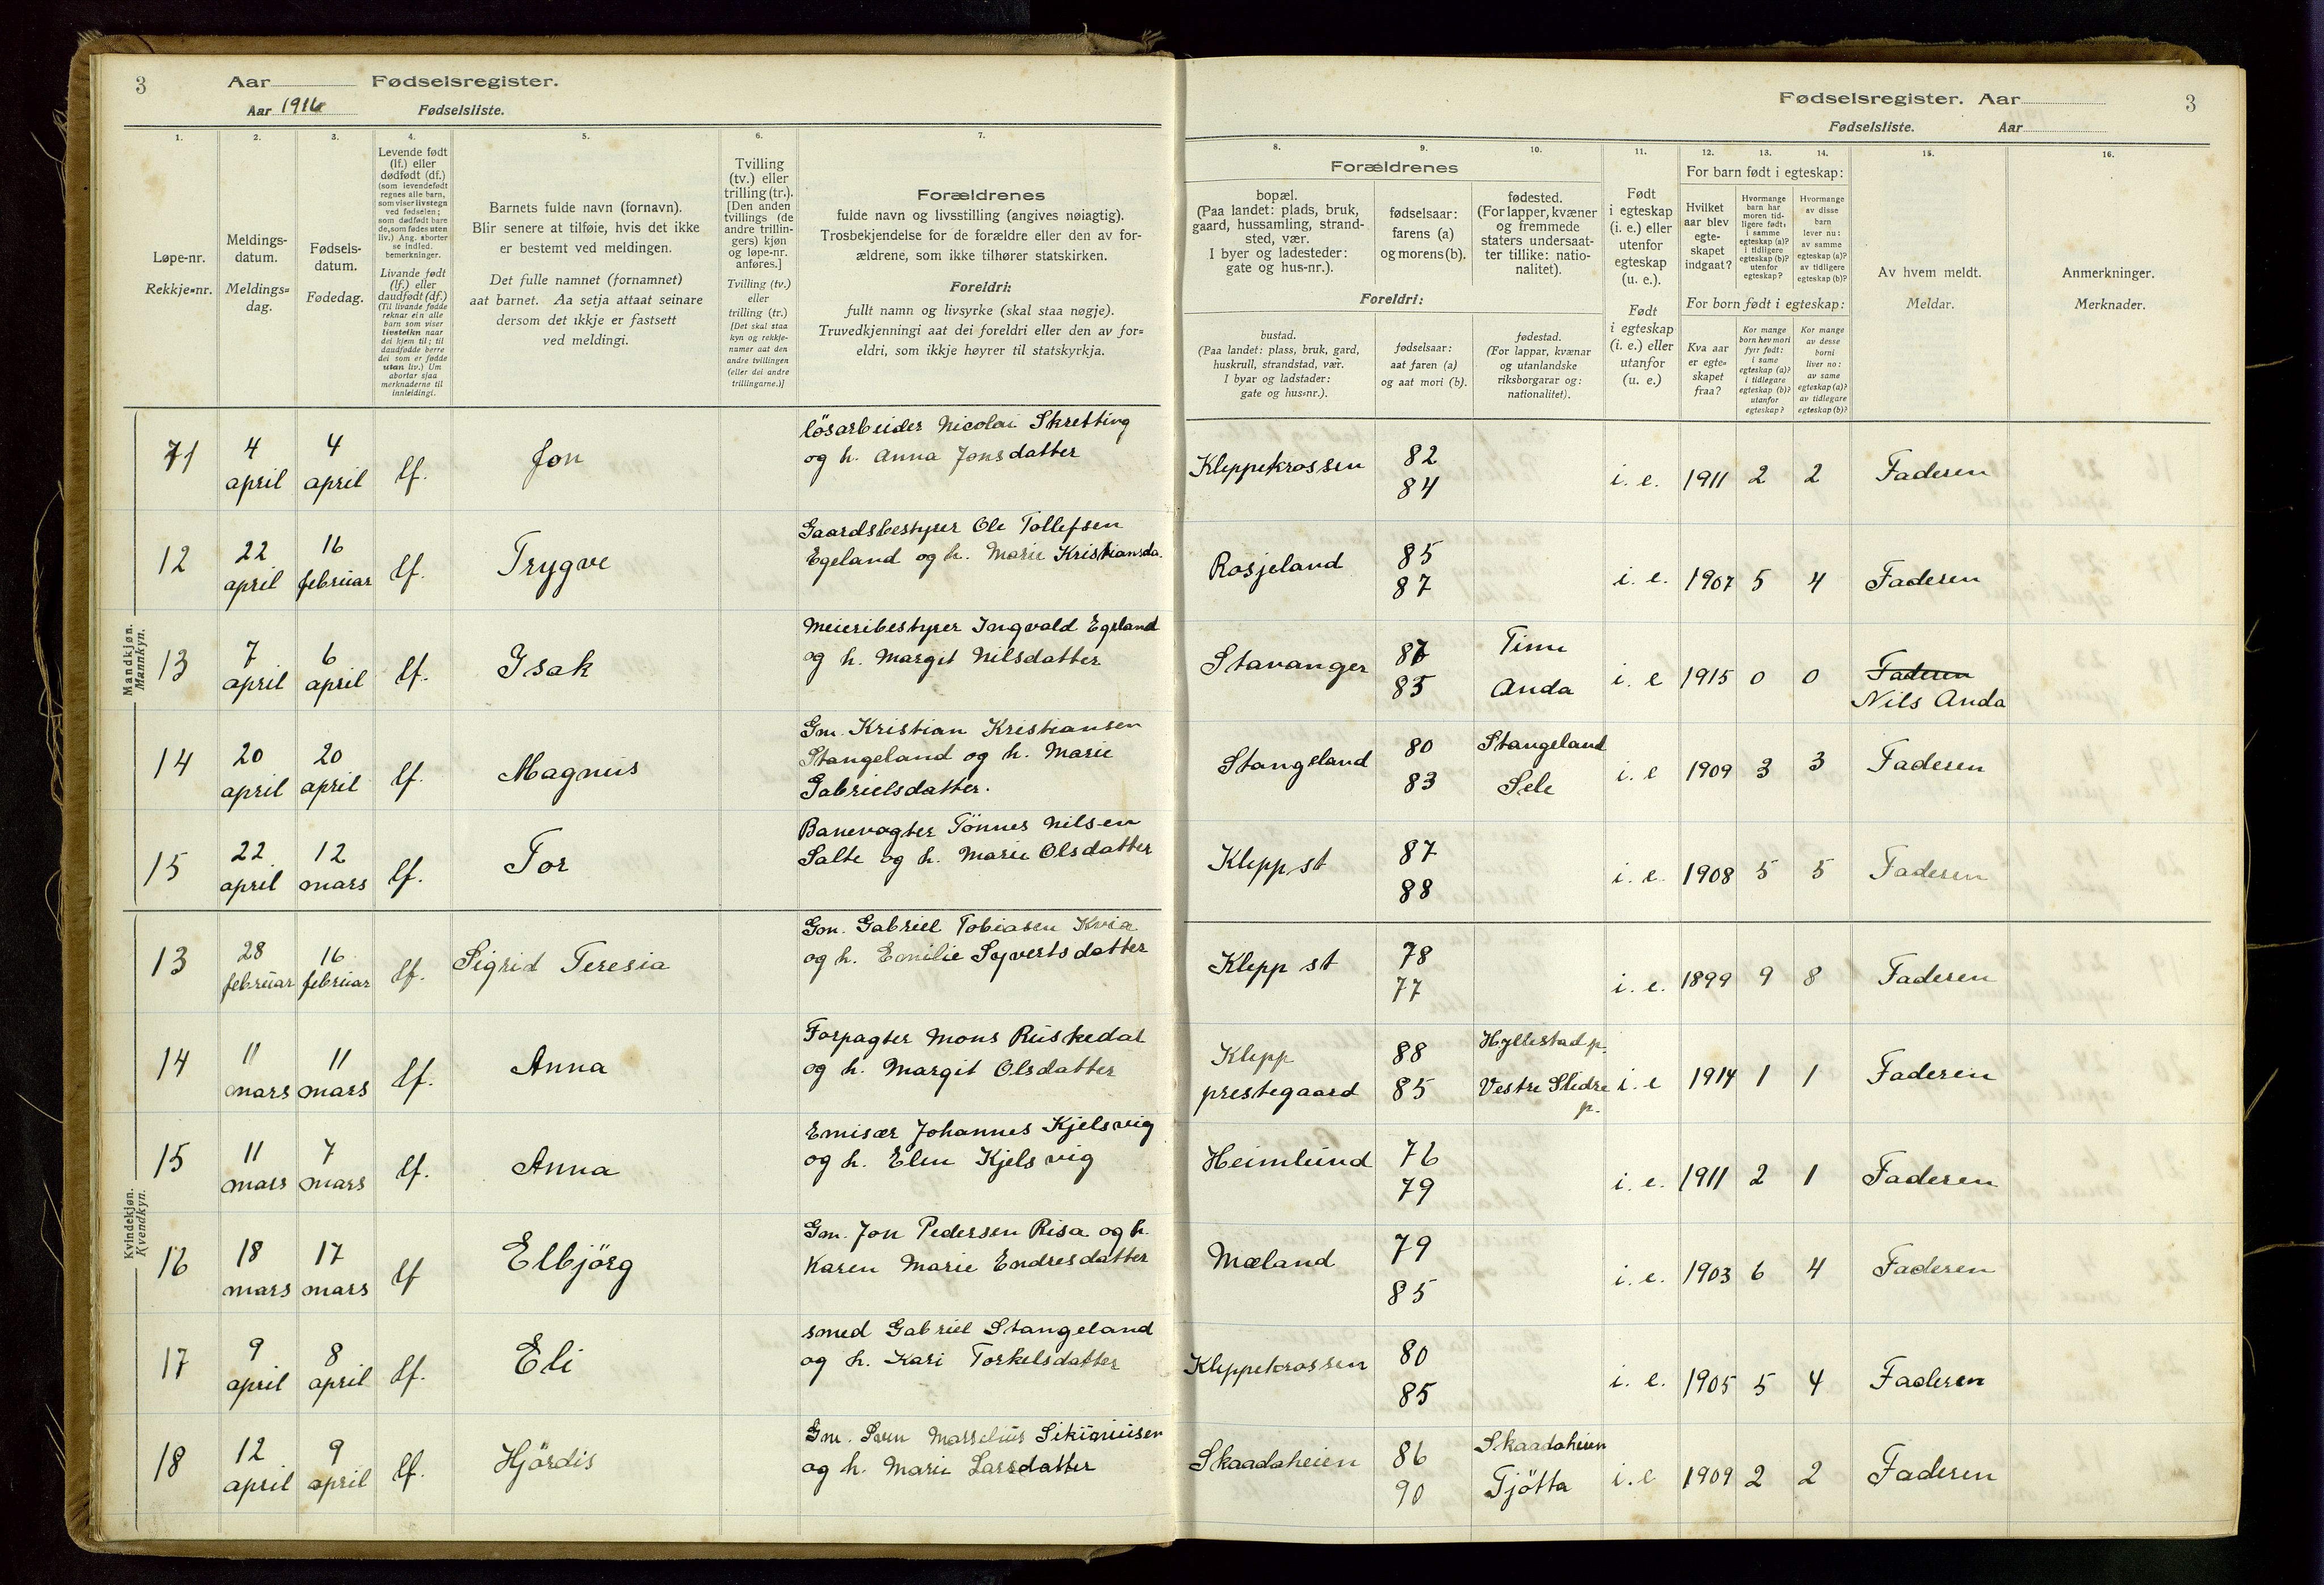 3 Aar Fødselsregister.
Aar 1916 Fødselsliste.
Fødselsregister. Aar 3
Fødselsliste. Aar
1. 2. 3. 4. 5. 6. 7.
Løpe-nr.
Rekkje-nr.
Meldings-
datum.
Meldings-
dag.
Fødsels-
datum.
Fødedag.
Levende født
(lf.) eller
dødfødt (df.)
(som levendefødt
regnes alle barn,
som viser livstegn
ved fødselen;
som dødfødt bare
de, som fødes uten
liv.) Ang. aborter
se indled.
bemerkninger.
Livande født
(lf.) eller
daudfødt (df.)
(Til livande fødde
reknar ein alle
barn som viser
livsteikn naar
dei kjem til; til
daudfødde berre
dei som er fødde
utan liv.) Um
abortar sjaa
merknaderne til
innleidingi.
Barnets fulde navn (fornavn).
Blir senere at tilføie, hvis det ikke
er bestemt ved meldingen.
Det fulle namnet (fornamnet)
aat barnet. Aa setja attaat seinare
dersom det ikkje er fastsett
ved meldingi.
Tvilling
(tv.) eller
trilling (tr.).
[Den anden
tvillings (de
andre trillin-
gers) kjøn
og løpe-nr.
anføres.]
Tvilling (tv.)
eller
trilling (tr.)
[Det skal staa
kyn og rekkje-
numer aat den
andre tvillingen
(eller dei andre
trillingarne.)]
Forældrenes
fulde navn og livsstilling (angives nøiagtig).
Trosbekjendelse for de forældre eller den av for-
ældrene, som ikke tilhører statskirken.
Foreldri:
fullt namn og livsyrke (skal staa nøgje).
Truvedkjenningi aat dei foreldri eller den av for-
eldri, som ikkje høyrer til statskyrkja.
8. 9. 10. 11. 12. 13. 14. 15. 16.
Forældrenes
bopæl.
(Paa landet: plads, bruk,
gaard, hussamling, strand-
sted, vær.
I byer og ladesteder:
gate og hus-nr.).
fødselsaar:
farens (a)
og morens (b).
fødested.
(For lapper, kvæner
og fremmede
staters undersaat-
ter tillike: natio-
nalitet).
Foreldri:
bustad.
(Paa landet: plass, bruk, gard,
huskrull, strandstad, vær.
I byar og ladstader:
gate og hus-nr.).
fødselsaar:
aat faren (a)
og aat mori (b).
fødestad.
(For lappar, kvænar
og utanlandske
riksborgarar og:
nationalitet).
Født
i egteskap
(i. e.) eller
utenfor
egteskap
(u. e.).
Født
i egteskap
(i. e.) eller
utanfor
(u. e.)
For barn født i egteskap:
Hvilket
aar blev
egte-
skapet
indgaat?
Hvormange
barn har
moren tid-
ligere født:
i samme
egteskap (a)?
i tidligere
egteskap (b)?
utenfor
egteskap?
Hvormange
av disse
barn
lever nu:
av samme
egteskap (a)?
av tidligere
egteskap (b)?
For born født i egteskap:
Kva aar
er egte-
skapet
fraa?
Kor mange
born hev mori
fyrr født:
i same
egteskap (a)?
i tidlegare
egteskap (b)?
utanfor
egteskap?
Kor mange
av desse
borni
liver no:
av same
egteskap (a)?
av tidlegare
egteskap (b)?
Av hvem meldt.
Meldar.
Anmerkninger.
Merknader.
Mandkjøn.
Mannkyn.
11 4 april 4 april lf. Jon løsarbeider Nicolai Skretting
og h. Anna Jonsdatter Kleppekrossen 82 84 i. e. 1911 2 2 Faderen
12 22 april 16 februar lf. Trygve Gaardsbestyrer Ole Tollefsen
Egeland og h. Marie Kristiansda. Rosjeland 85 87 i. e. 1907 5 4 Faderen
13 7 april 6 april lf. Isak Meieribestyrer Ingvald Egeland
og h. Margit Nilsdatter Stavanger 87 85 Time Anda i. e 1915 0 0 Faderen
Nils Anda
14 20 april 20 april lf. Magnus Gm. Kristian Kristiansen
Stangeland og h. Marie
Gabrielsdatter. Stangeland 80 83 Stangeland Sele i. e 1909 3 3 Faderen
15 22 april 12 mars lf. Tor Banevogter Tönnes Nilsen
Salte og h. Marie Olsdatter Klepp st 87 88 i. e. 1908 5 5 Faderen
Kvindekjøn.
Kvendkyn.
13 28 februar 16 februar lf. Sigrid Teresia Gm. Gabriel Tobiasen Kvia
og h. Emilie Syvertsdatter Klepp st 78 77 i. e. 1899 9 8 Faderen
14 11 mars 11 mars lf. Anna Forpagter Mons Ruskedal
og h. Margit Olsdatter Klepp
prestegaard 88 85 Hyllestad p. Vestre Slidre p. i. e 1914 1 1 Faderen
15 11 mars 7 mars lf. Anna Emisær Johannes Kjelsvig
og h. Elen Kjelsvig Heimlund 76 79 i. e. 1911 2 1 Faderen
16 18 mars 17 mars lf Elbjörg Gm. Jon Pedersen Risa og h.
Karen Marie Endresdatter Mæland 79 85 i. e. 1903 6 4 Faderen
17 9 april 8 april lf. Eli smed Gabriel Stangeland
og h. Kari Torkelsdatter Kleppekrossen 80 85 i. e. 1905 5 4 Faderen
18 12 april 9 april lf. Hjördis Gm. Sven
og h. Marie Larsdatter Skaadaheien 86 90 Skaadaheien Tjötta i. e 1909 2 2 Faderen